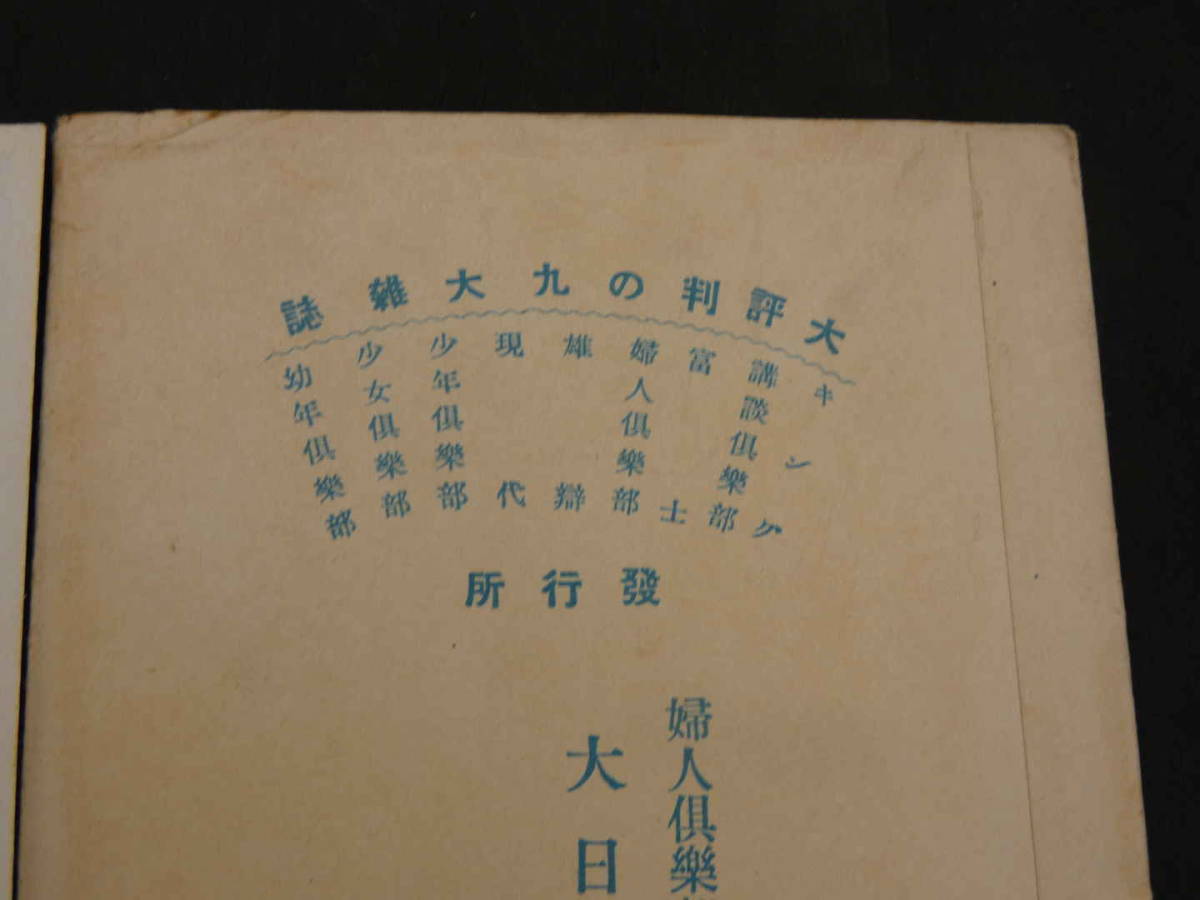 大評判の九大雜誌
キング
講談俱樂部
富士
婦人俱樂部
雄辯
現代
少年俱樂部
少女俱樂部
幼年俱樂部
發行所
婦人俱樂
大日